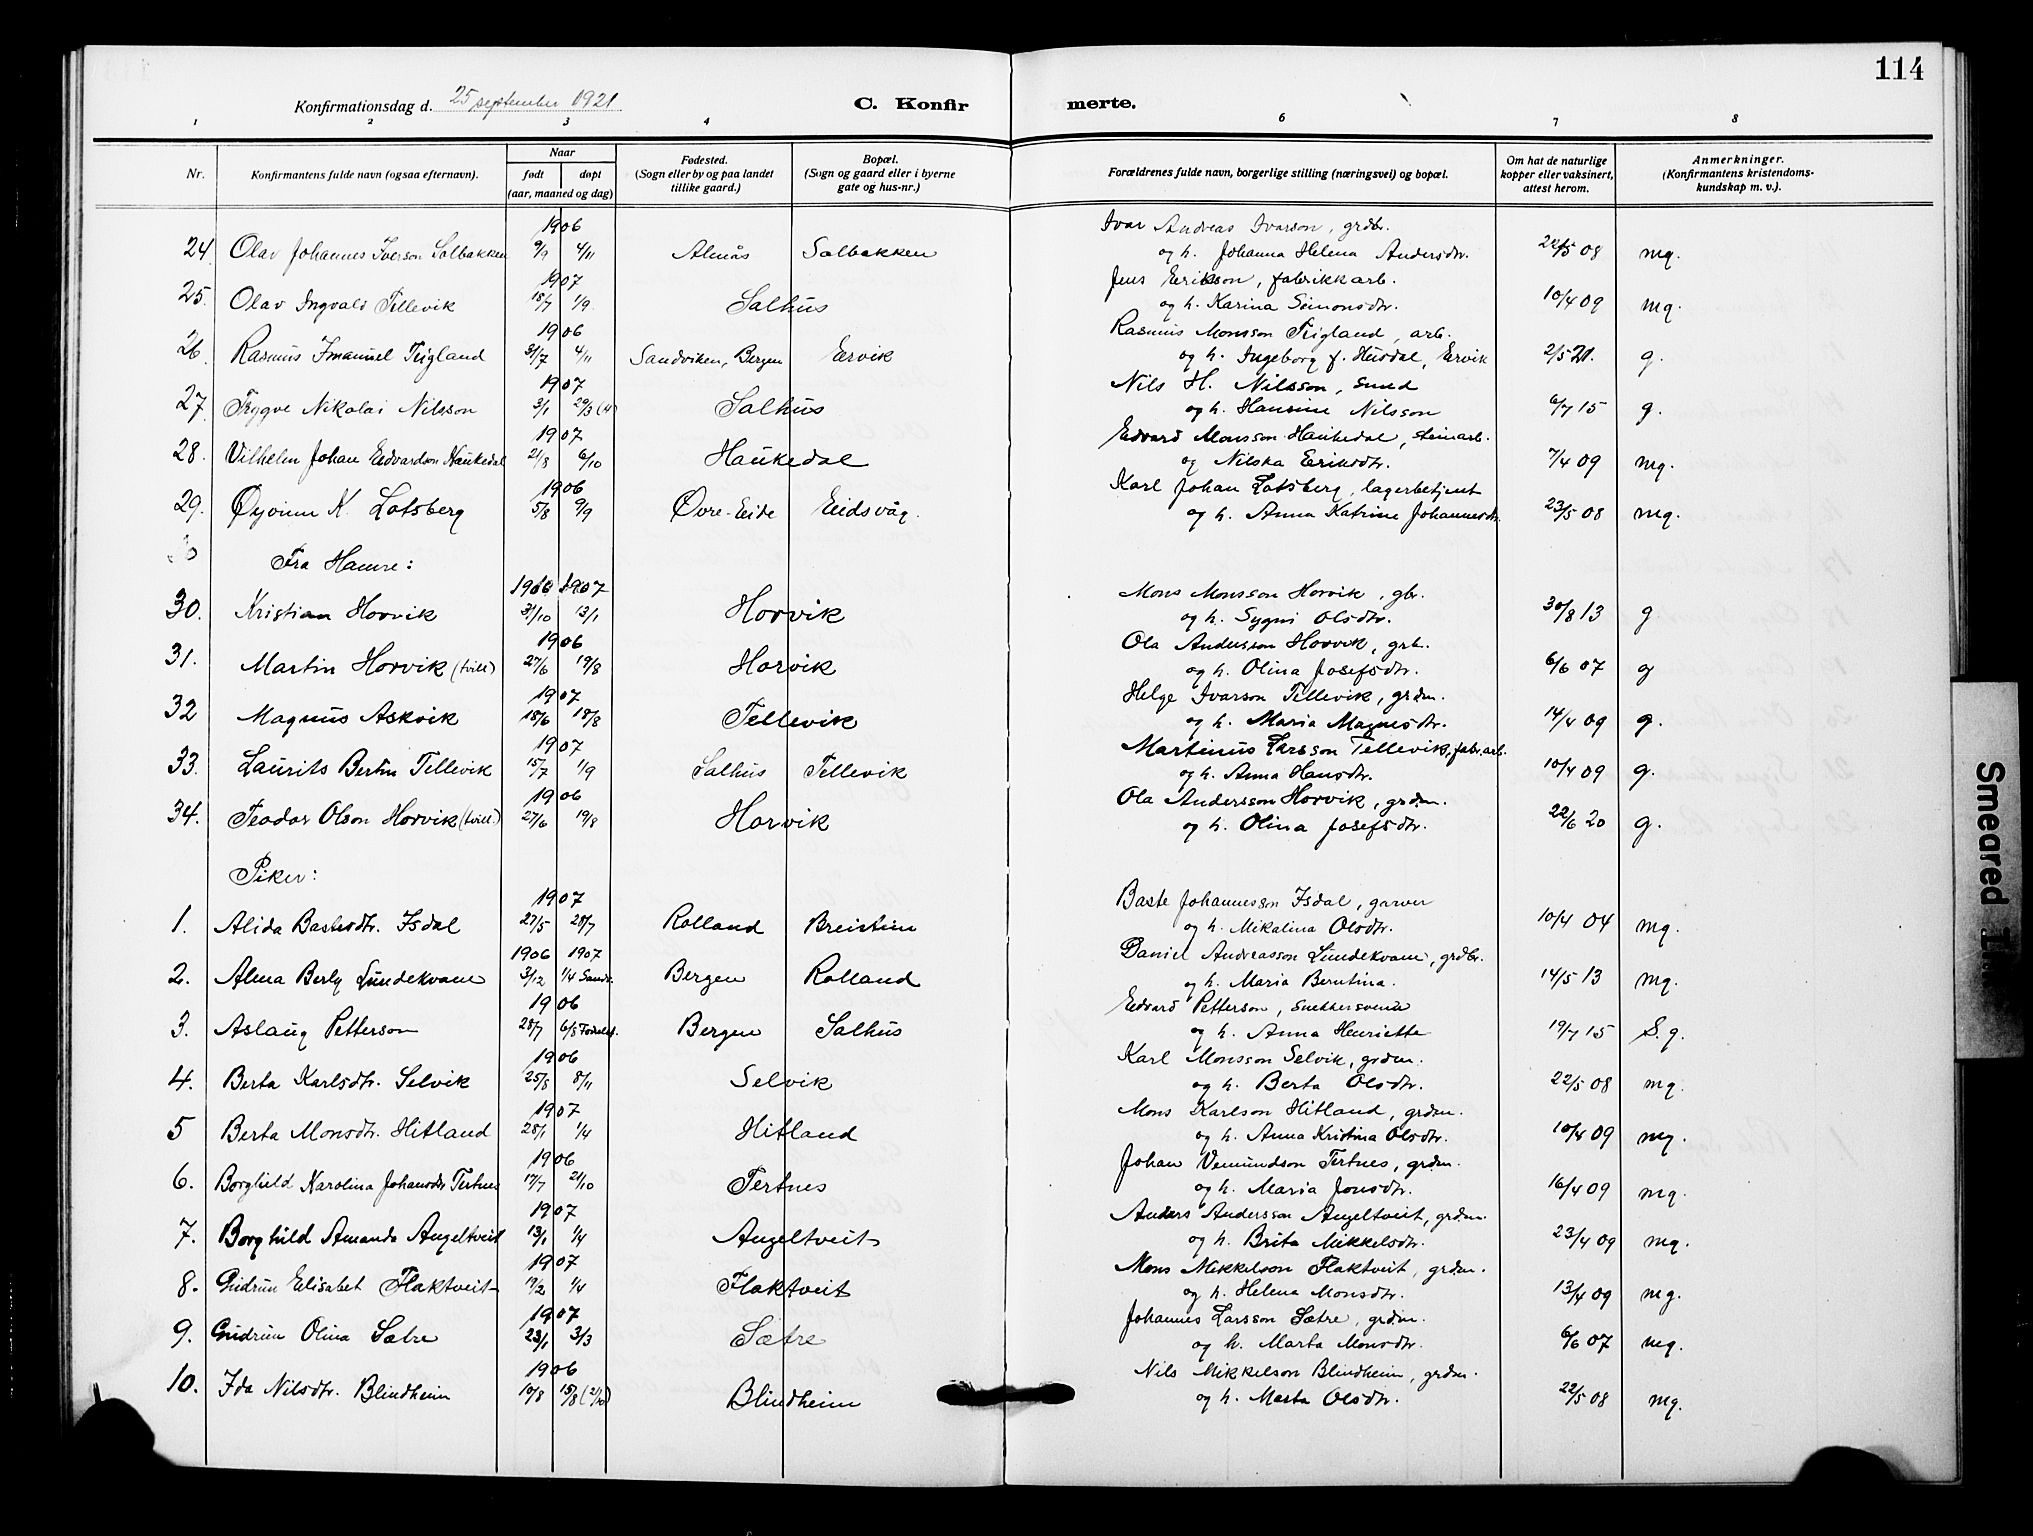 114
Konfirmationsdag d. 25 september 1921 C. Konfir merte.
1 2 3 4 6 7 8
Nr. Konfirmantens fulde navn (ogsaa efternavn). Naar født døpt (aar, maaned og dag) Fødested. (Sogn eller by og paa landet tillike gaard.) Bopæl. (Sogn og gaard eller i byerne gate og hus-nr.) Forældrenes fulde navn, borgerlige stilling (næringsvei) og bopæl. Om hat de naturlige kopper eller vaksinert, attest herom. Anmerkninger. (Konfirmantens kristendoms- kundskap m. v.).
1906 Ivar Andreas Ivarson, grdbr.
24 Olav Johannes Iverson Solbakken 9/9 4/11 Almås Solbakken og h. Johanna Helena Andersdtr. 22/5 08 mg.
1907 Jens Erikson, fabrikkarb.
25. Olav Ingvald Tellevik 18/7 1/9 Salhus og h. Karina Simonsdtr. 10/4 09 mg.
1906 Rasmus Monsson Teigland, arb.
26. Rasmus Imanuel Teigland 31/7 4/11 Sandviken, Bergen Eervik og h. Ingeborg f. Husdal, Eervik 2/5 21. g.
1907 Nils H. Nilsson, smed
27. Trygve Nikolai Nilsson 3/1 29/3 (H) Salhus og h. Hansine Nilsson 6/7 15 g.
1907 Edvard Monsson Haukedal, steinarb.
28. Vilhelm Johan Edvardson Haukedal 21/8 6/10 Haukedal og Nilska Eriksdtr. 7/4 09 mg.
1906 Karl Johan Lotsberg, lagerbetjent
29. Øyvinn K. Lotsberg 5/8 9/9 Øvre-Eide Eidsvåg. og h. Anna Katrine Johannesdtr. 23/5 08 mg.
Fra Hamre:
1906 1907 Mons Monsson Horvik, gbr.
30. Kristian Horvik 31/10 13/1 Horvik og h. Sygni Olsdtr. 30/8 13 g
1906 Ola Andersson Horvik, grb.
31. Martin Horvik (tvill) 27/6 19/8 Horvik og h. Olina Josefsdtr. 6/6 07 g
1907 Helge Ivarson Tellevik, grdm.
32 Magnus Askvik 18/6 18/8 Tellevik og h. Maria Magnesdtr. 14/4 09 g.
1907 Martinus Larsson Tellevik, fabr.arb.
33. Laurits Bertin Tellevik 15/7 1/9 Salhus Tellevik og h. Anna Hansdtr. 10/4 09 g.
1906 Ola Andersson Horvik, grdm.
34. Teodor Olson Horvik (tvill.) 27/6 19/8 Horvik og h. Olina Josefsdtr. 22/6 20 g.
Piker:
1907 Baste Johannesson Isdal, garver
1. Alida Bastesdtr. Isdal 27/5 28/7 Rolland Breistein og h. Mikalina Olsdtr. 10/4 04 mg.
1906 1907 Daniel Andreasson Lundekvam, grdbr.
2. Alma Berly Lundekvam 3/12 1/4 Sandv. Bergen Rolland og h. Maria Berntina. 14/5 13 mg.
1906 Edvard Petterson, snekkersvenn
3. Aslaug Petterson 28/7 Bergen Salhus og h. Anna Henriette 19/7 15 S.g.
1906 Karl Monsson Selvik, grdm.
4. Berta Karlsdtr. Selvik 25/8 8/11 Selvik og h. Berta Olsdtr. 22/5 08 mg.
1907 Mons Karlson Hitland, grdm.
5 Berta Monsdtr. Hitland 28/1 1/4 Hitland og h. Anna Kristina Olsdtr. 10/4 09 mg.
1906 Johan Vemundson Tertnes, grdm.
6. Borghild Karolina Johansdtr Tertnes 17/7 21/10 Tertnes og h. Maria Jonsdtr. 16/4 09 mg.
1907 Anders Andersson Angeltveit, grdm.
7. Borghild Amanda Angeltveit 13/1 1/4 Angeltveit og h. Brita Mikkelsdtr. 23/4 09 mg.
1907 Mons Mikkelson Flaktveit, grdm.
8. Gudrun Elisabet Flaktveit 17/2 1/4 Flaktveit og h. Helena Monsdtr. 13/4 09 mg.
1907 Johannes Larsson Sætre, grdm.
9. Gudrun Olina Sætre 23/1 3/3 Sætre og h. Marta Monsdtr. 6/6 07 mg.
1906 Nils Mikkelson Blindheim, grdm.
10. Ida Nilsdtr. Blindheim 10/8 15/8 (2/10) Blindheim og h. Marta Olsdtr. 22/5 08 mg.
Smeared